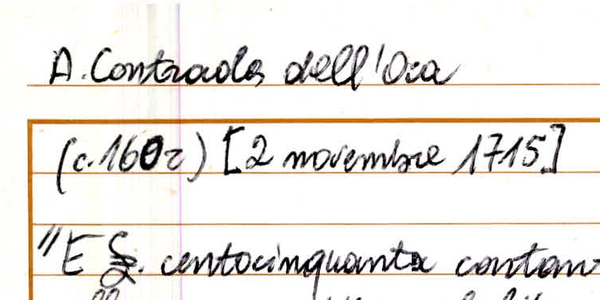 A. Contrada dell'Oca
(c. 160r) [2 novembre 1715]
"E £. centocinquanta contan